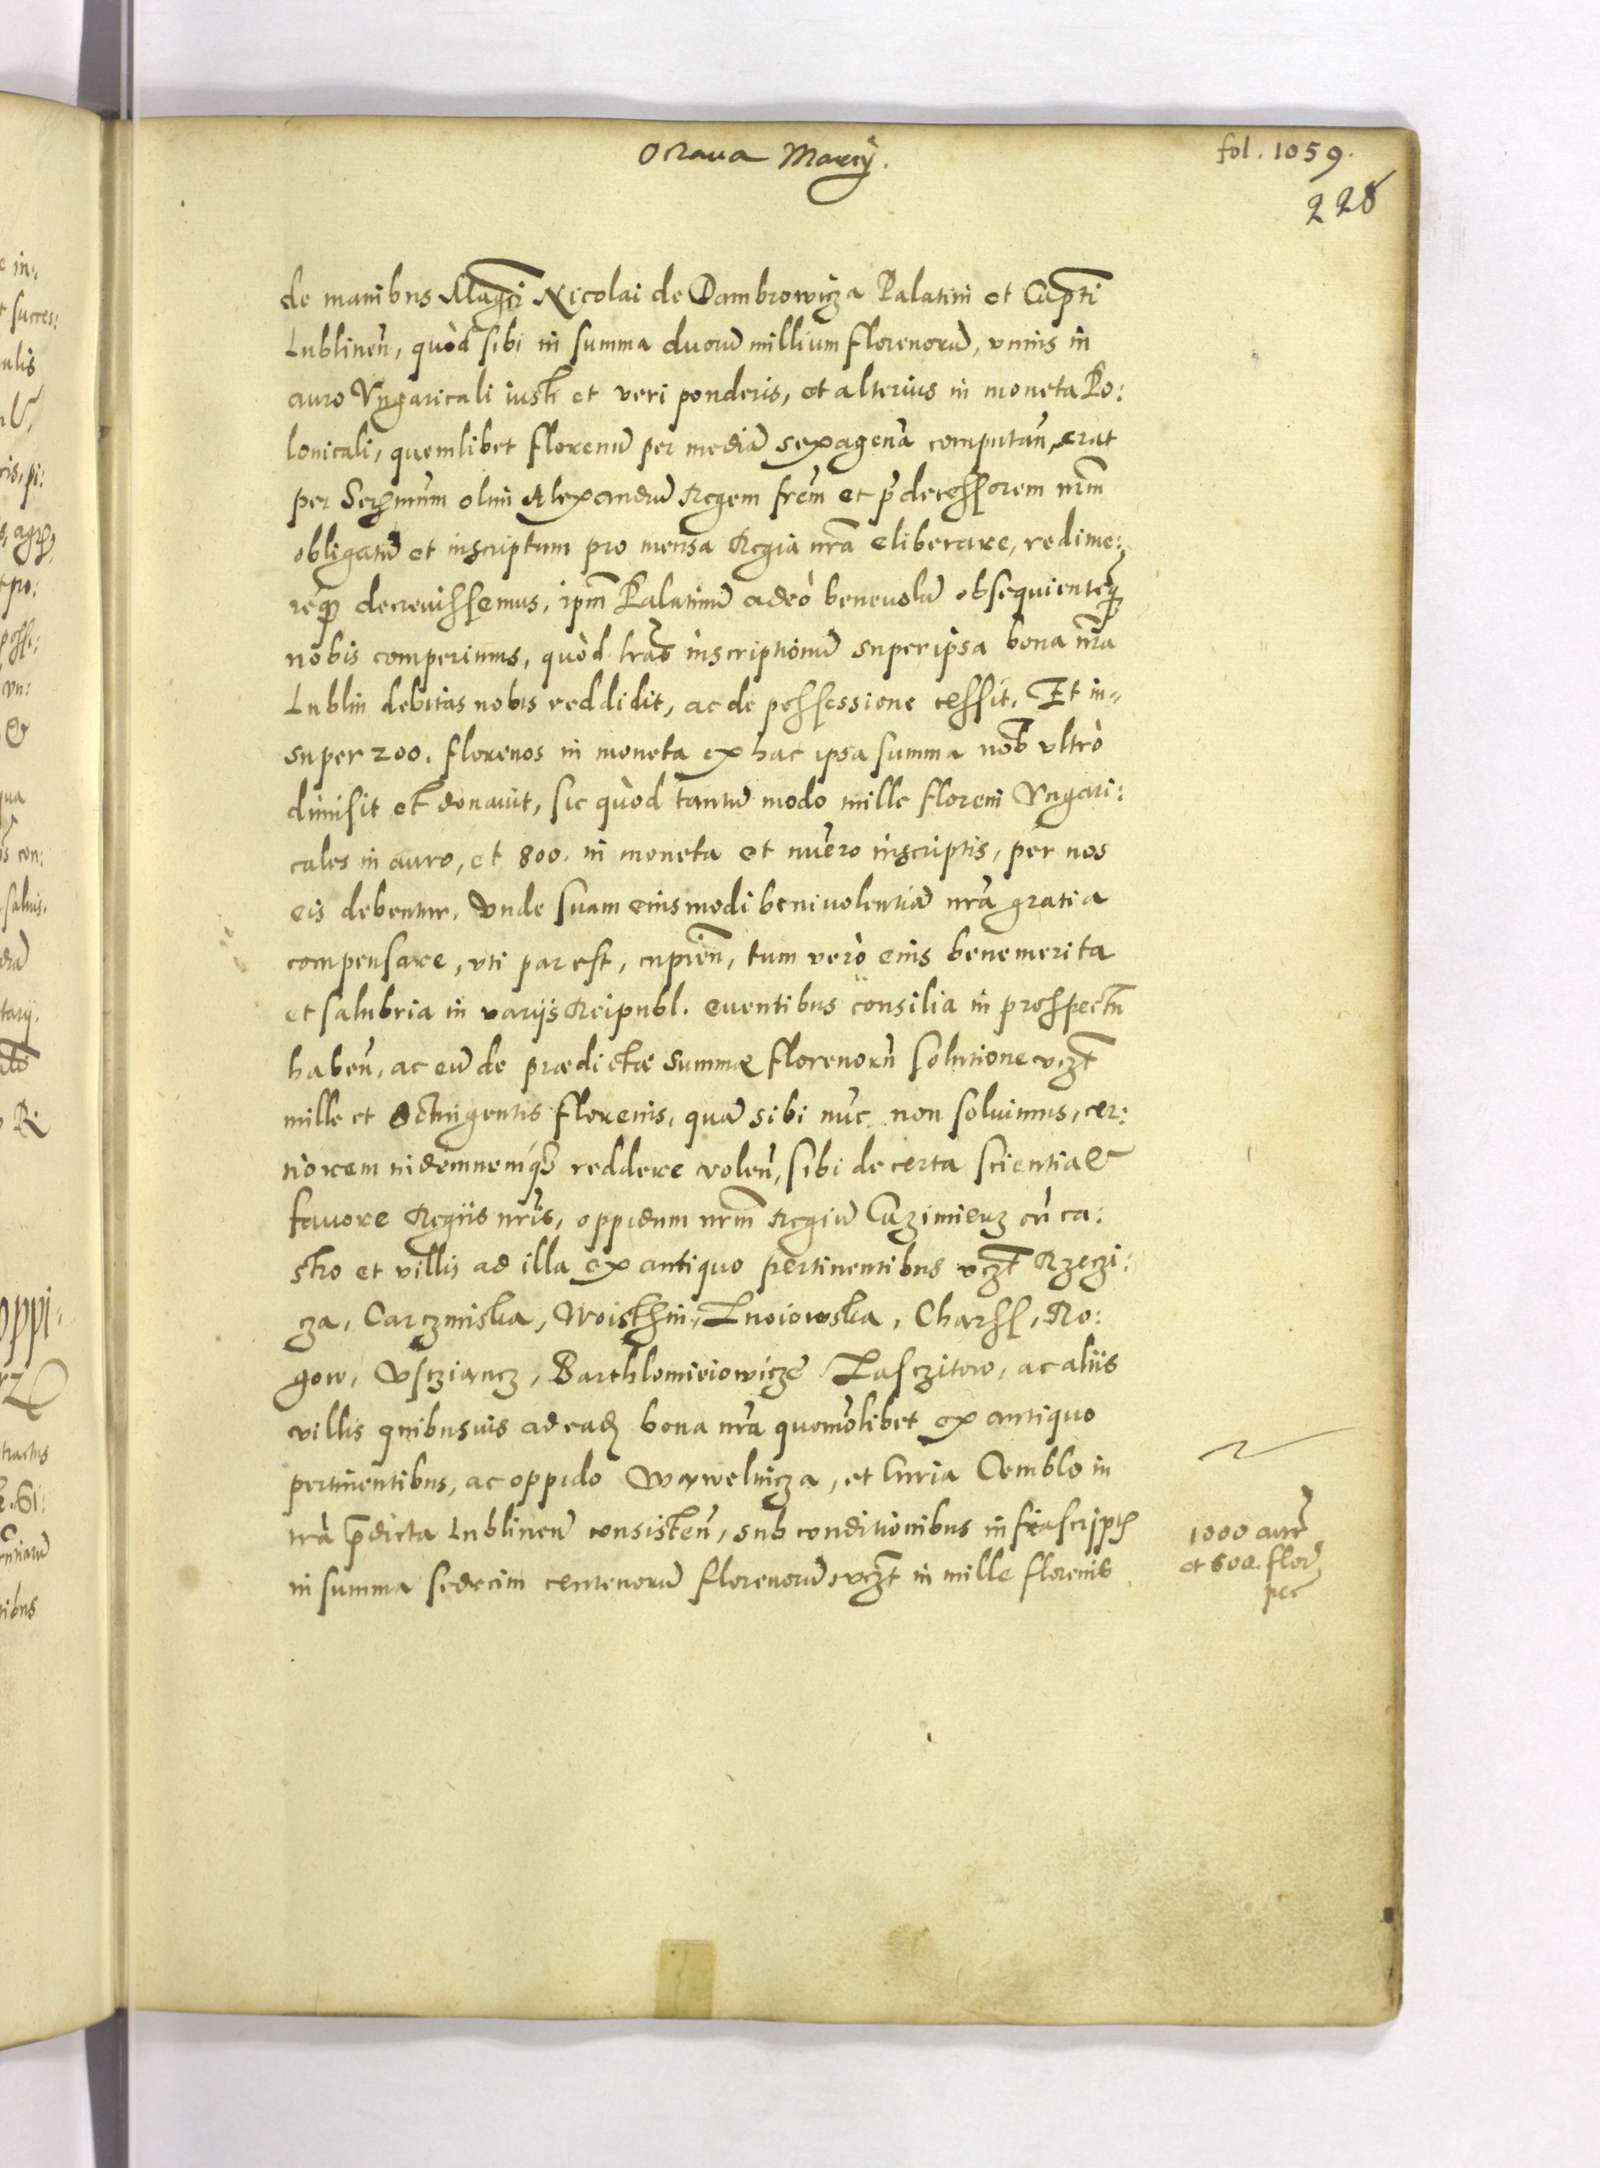 Octaua Marcij.
fol. 1059.
228
de manibus Magci Nicolai de Dambrowicza Palatini et Capti
Lublineñ, quòd sibi in summa duorũ millium florenorũ, vnius in
auro Vngaricali iusti et veri ponderis, et alterius in moneta Po:
lonicali, quemlibet florenũ per mediã sexagenã computañ, erat
per Sermũm olim Alexandrũ Regem frẽm et p̃decessorem nrm̃
obligatũ et inscriptum pro mensa Regia nrã eliberare, redime:
req3 decreuissemus, ipm̃ Palatinũ adeò beneuolũ obsequientẽq3
nobis comperimus, quòd lrãs inscriptionũ super ipsa bona nrã
Lublin debitas nobis reddidit, ac de possessione cessit. Et in-
super 200. florenos in moneta ex hac ipsa summa nob ultrò
dimisit et donauit, sic quòd tantũ modo mille floreni Vngari:
cales in auro, et 800. in moneta et nũero inscriptis, per nos
eis debentur. Vnde suam eiusmodi beniuolentiã nrã gratia
compensare, vti par est, cupieñ, tum verò eius benemerita
et salubria in varijs Reipubl. euentibus consilia in prospectu
habeñ, ac eũ de prædictæ summæ florenorũ solutione vcz̃t
mille et octingentis florenis, quã sibi nũc non soluimus, cer:
tiorem indemnemq3 reddere voleñ, sibi de certa scientia &
fauore Regijs nrĩs, oppidum nrm̃ Regiũ Cazimierz cũ ca:
stro et villis ad illa ex antiquo pertinentibus vcz̃t Rzeczi:
cza, Carczmiska, Woisthin, Lnoiowska, Charss, Ro:
gow, Vscziancz, Barthlomieiowicze Lasczitow, ac aliis
villis quibusuis ad eadẽ bona nrã quomõlibet ex antiquo
pertinentibus, ac oppido Wawelnicza, et Curia Cemblo in
trà p̃dicta Lublineñ consisteñ, sub conditionibus infrascriptis
in summa sedecim centenorũ florenorũ, vcz̃t in mille florenis
1000 aurẽ
et 600. florẽ
pec